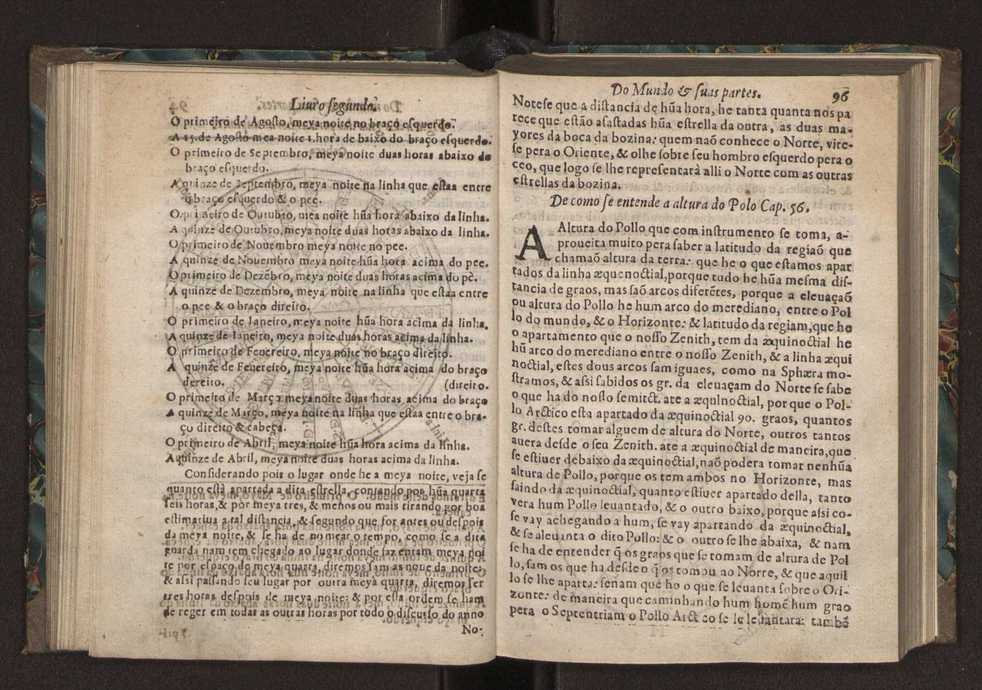 Liuro segundo.
O primeiro de Agosto, meya noite no braço esquerdo.
A 15. de Agosto mea noite 1. hora de baixo do braço esquerdo.
O primeiro de Septembro, meya noite duas horas abaixo do
braço esquerdo.
A quinze de Septembro, meya noite na linha que estaa entre
o braço esquerdo & o pee.
O primeiro de Outubro, mea noite hũa hora abaixo da linha.
A quinze de Outubro, meya noite duas horas abaixo da linha.
O primeiro de Nouembro meya noite no pee.
A quinze de Nouembro meya noite hũa hora acima do pee.
O primeiro de Dezẽbro, meya noite duas horas acima do pè.
A quinze de Dezembro, meya noite na linha que estaa entre
o pee & o braço direito.
O primeiro de Ianeiro, meya noite hũa hora acima da linha.
A quinze de Ianeiro, meya noite duas horas acima da linha.
O primeiro de Feuereiro, meya noite no braço direito.
A quinze de Feuereiro, meya noite hũa hora acima do braço
dereito. (direito.
O primeiro de Março meya noite duas horas acima do braço
A quinze de Março, meya noite na linha que estaa entre o bra-
ço direito & cabeça.
O primeiro de Abril, meya noite hũa hora acima da linha.
A quinze de Abril, meya noite duas horas acima da linha.
Considerando pois o lugar onde he a meya noite, veja se
quanto està apartada a dita estrella, contando por hũa quarta
seis horas, & por meya tres, & menos ou mais tirando por boa
estimatiua a tal distancia, & segundo que for antes ou despois
da meya noite, & se ha de nomear o tempo, como se a dita
guarda nam tem chegado ao lugar donde fazentam meya noi
te por espaço de meya quarta, diremos sam as noue da noite:
& assi passando seu lugar por outra meya quarta, diremos ser
tres horas despois de meya noite: & por esta ordem se ham
de reger em todas as outras horas por todo o discurso do anno
No-
Do Mundo & suas partes. 96
Notese que a distancia de hũa hora, he tanta quanta nos pa
rece que estão afastadas hũa estrella da outra, as duas ma-
yores da boca da bozina: quem naõ conhece o Norte, vire-
se pera o Oriente, & olhe sobre seu hombro esquerdo pera o
ceo, que logo se lhe representarà alli o Norte com as outras
estrellas da bozina.
De como se entende a altura do Polo Cap. 56.
A Altura do Pollo que com instrumento se toma, a-
proueita muito pera saber a latitudo da regiaõ que
chamaõ altura da terra: que he o que estamos apar
tados da linha æquenoctial, porque tudo he hũa mesma dis-
tancia de graos, mas saõ arcos diferẽtes, porque a eleuaçaõ
ou altura do Pollo he hum arco do merediano, entre o Pol
lo do mundo, & o Horizonte: & latitudo da regiam, que he
o apartamento que o nosso Zenith, tem da æquinoctial he
hũ arco do merediano entre o nosso Zenith, & a linha æqui
noctial, estes dous arcos sam iguaes, como na Sphæra mo-
stramos, & assi sabidos os gr. da eleuaçam do Norte se sabe
o que ha do nosso semitct. ate a æqulnoctial, por que o Pol-
lo Arctico esta apartado da æquinoctial 90. graos, quantos
gr. destes tomar alguem de altura do Norte, outros tantos
auera desde o seu Zenith. ate a æquinoctial de maneira, que
se estiuer debaixo da æquinoctial, naõ podera tomar nenhũa
altura de Pollo, porque os tem ambos no Horizonte, mas
saindo da æquinoctial, quanto estiuer apartado della, tanto
vera hum Pollo leuantado, & o outro baixo, porque assi co-
se vay achegando a hum, se vay apartando da æquinoctial,
& se aleuanta o dito Pollo: & o outro se lhe abaixa, & nam
se ha de entender q̃ os graos que se tomam de altura de Pol
lo, sam os que ha desde o q̃ os tomou ao Norte, & que aquil
lo se lhe aparta: senam que he o que se leuanta sobre o Ori-
zonte: de maneira que caminhando hum homẽ hum grao
pera o Septentriam o Pollo Arctico se le leuantara: tambẽ